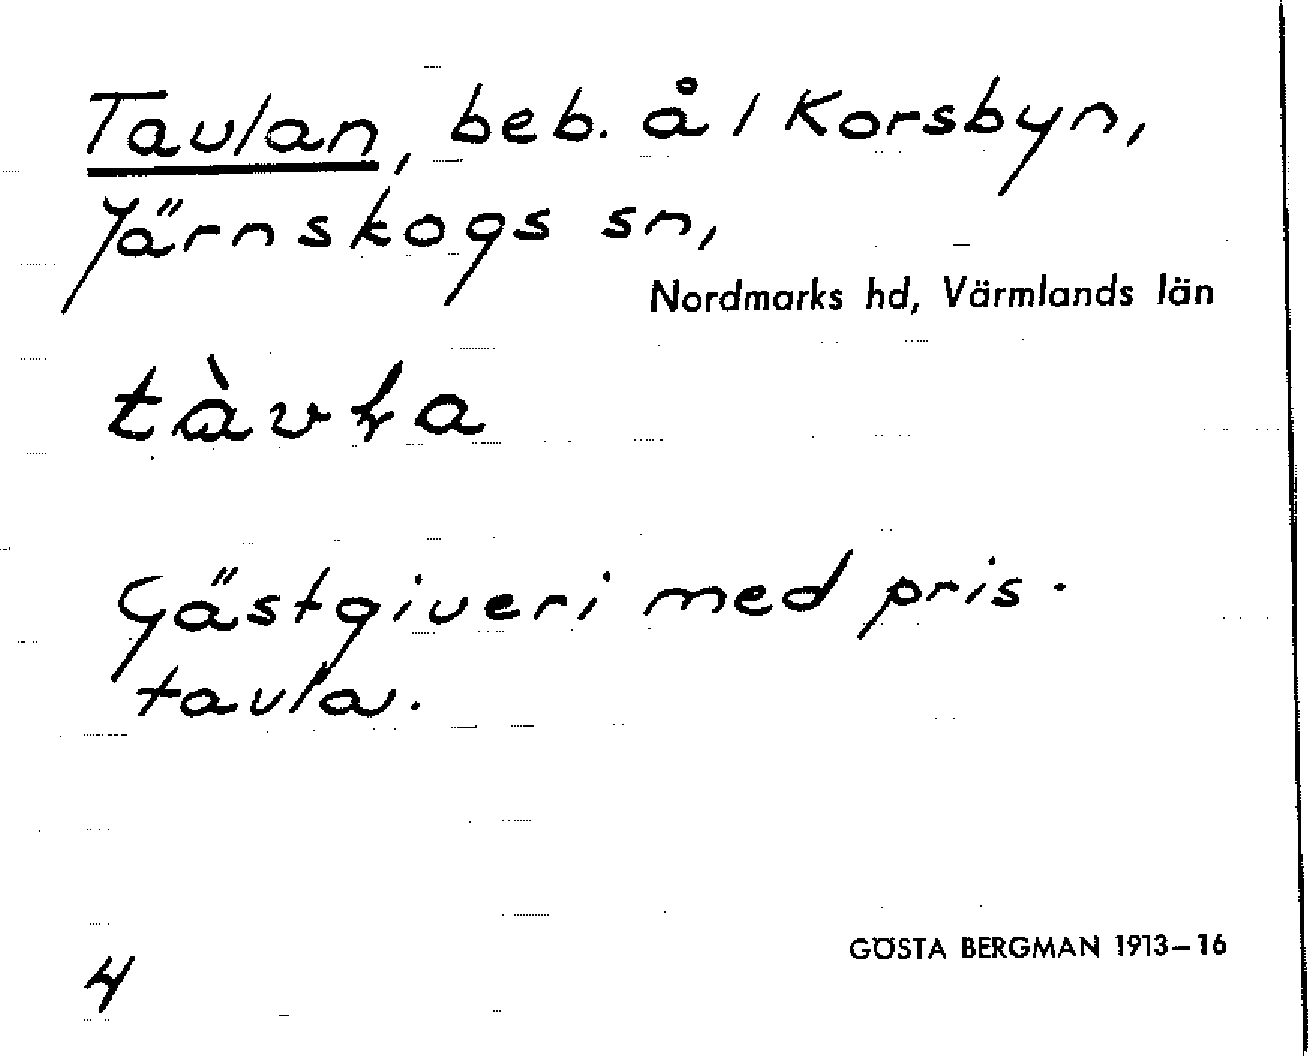 Taulan, beb. å 1 Korsbyn,
Järnskogs sn,
Nordmarks hd, Värmlands län
Gästgiveri med pris-
tavla.
4
GÖSTA BERGMAN 1913–16